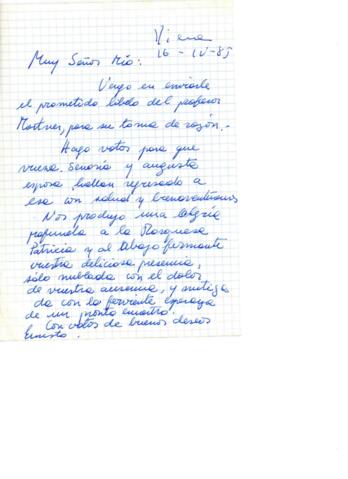 Viena
16-IV-85
Muy Señor Mío:
Vengo en enviarle
el prometido libelo del profesor
Mostner, para su toma de razón.-
Hago votos para que
vuesa Señoría y augusta
esposa hallan regresado a
esa con salud y buenaventuras,
Nos produjo una alegría
profunda a la Marquesa
Patricia y al abajo firmante
vuestra deliciosa presencia,
sólo nublada con el dolor
de vuestra ausencia, y mitiga
da con la ferviente esperanza
de un pronto encuentro.
Con votos de buenos deseos
Ernesto.